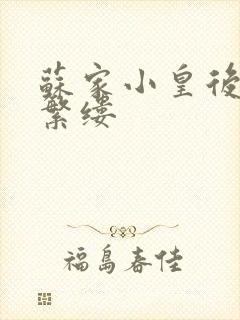 蘇家小皇後
繁縷
福島春佳